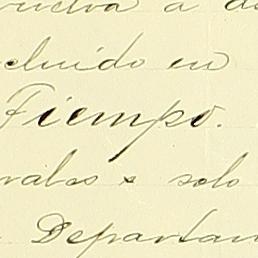 vuelva a de
cluido en
Tiempo.
rales x solo
Departam